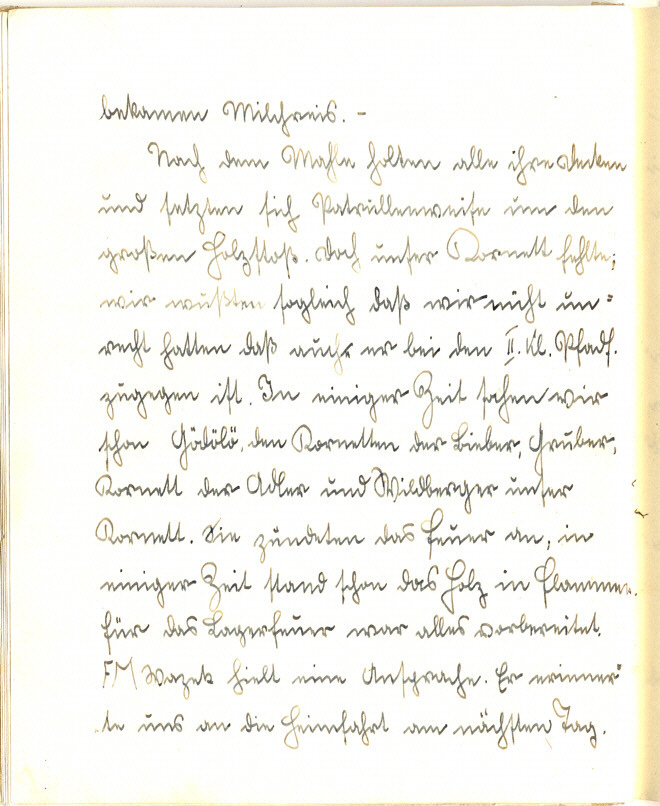 bekamen Milchreis. –
Nach dem Mahle holten alle ihre Decken
und setzten sich Patrullenweise um den
großen Holzstoß. Doch unser Kornett fehlte;
wir wußten sogleich daß wir nicht un=
recht hatten daß auch er bei den II. Kl. Pfadf.
zugegen ist. In einiger Zeit sahen wir
schon Gödölö, den Kornetten der Bieber, Gruber,
Kornett der Adler und Wildberger unser
Kornett. Sie zündeten das Feuer an, in
einiger Zeit stand schon das Holz in Flammen.
Für das Lagerfeuer war alles vorbereitet.
FM Wazek hielt eine Ansprache. Er erinner=
te uns an die Heimfahrt am nächsten Tag.